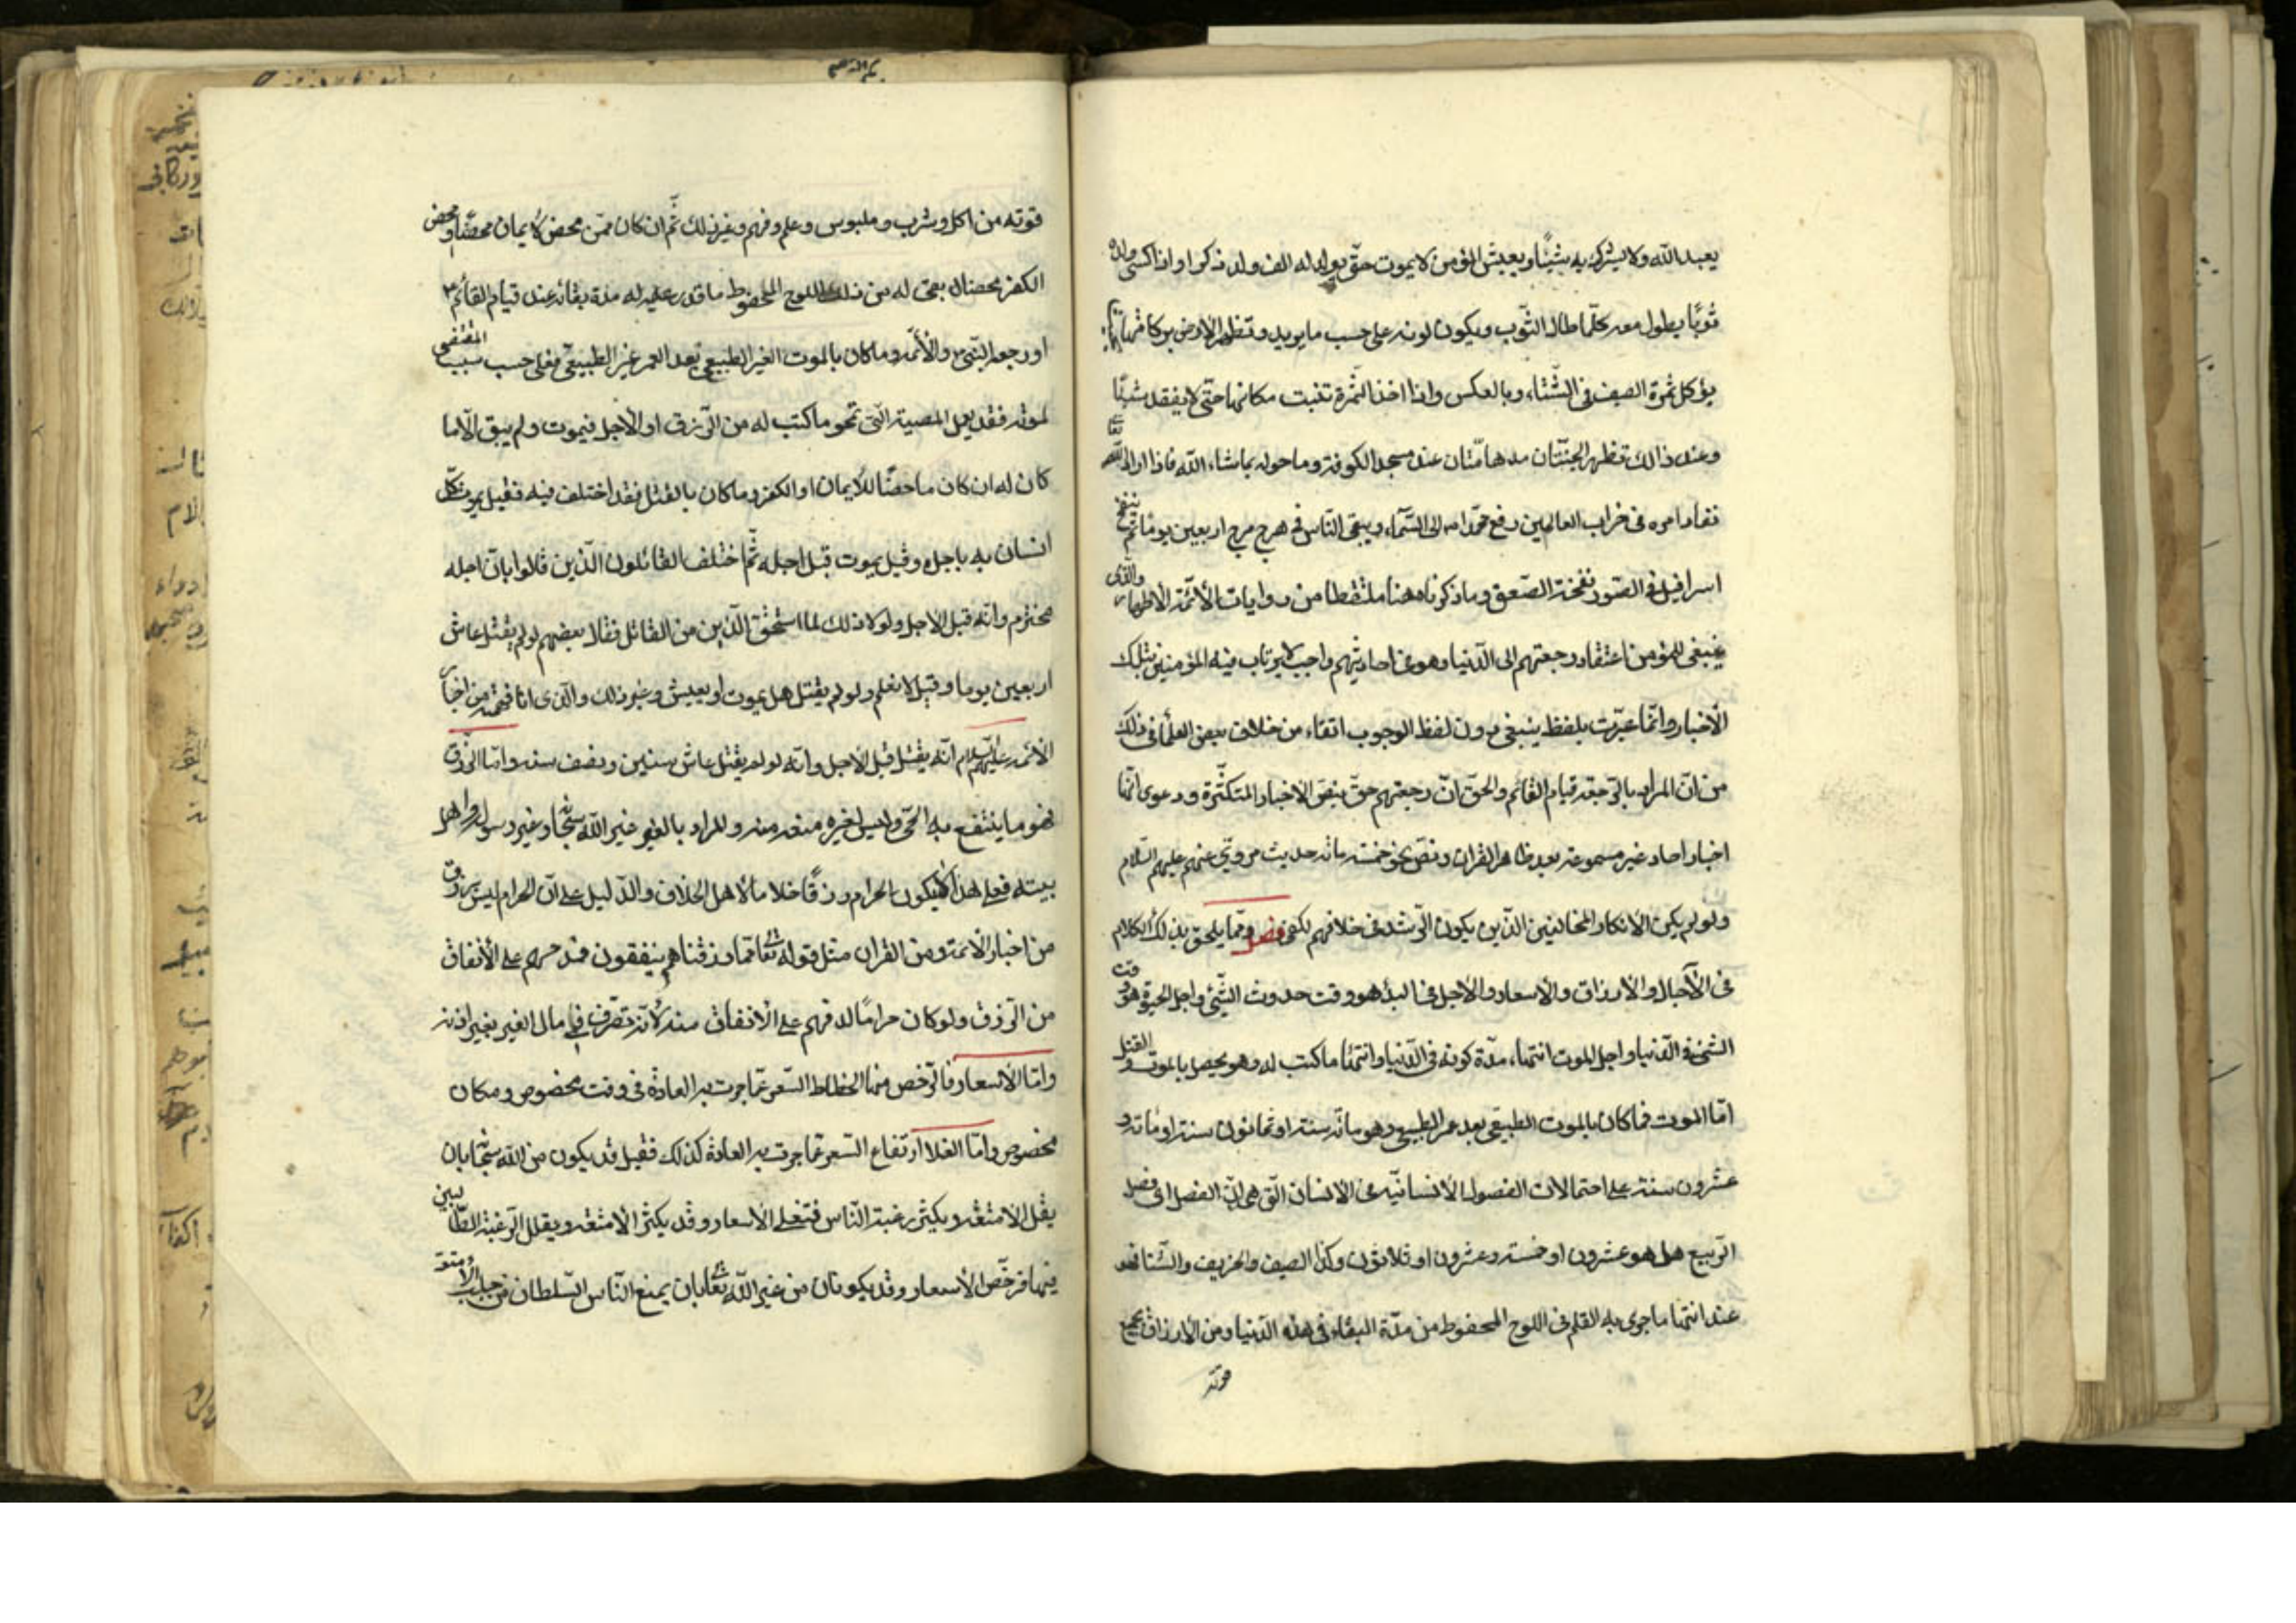 يعبد الله ولا يشرك به شيئا ويعيش المؤمن لا يموت حتّى يولد له الف ولد ذكر او اذا كسى ولده
ثوبًا يطول معه كلّما طال الثّوب ويكون لونه على حسب ما يريد وتظهر الارض بركاتها
يؤكل ثمرة الصيف فى الشّتاء وبالعكس واذا اخذ الثّمرة تنبت مكانها حتّى لا يفقد شيئًا
وعند ذالك تظهر الجنّتان مدهامّتان عند مسجد الكوفة وما حوله بما شاء الله فاذا اراد الله تعا
نفاد امره فى خراب العالمين رفع محمّدا واله الى السّماء ويبقى النّاس فى هرج مرج اربعين يومًا ثم ينفخ
اسرافيل فى الصّور نفخة الصّعق وما ذكرناه هنا ملتقطا من روايات الأئمّة الأطهار والّذى
ينبغى للمؤمن اعتقاد رجعتهم الى الدّنيا وهو من احاديثهم واجب لا يرتاب فيه المؤمنين بتلك
الأخبار وانّما عبّرت بلفظ ينبغى دون لفظ الوجوب اتقاء من خلاف بعض العلماء فى ذلك
من انّ المراد بالرّجعة قيام القائم والحقّ انّ رجعتهم حقّ بنصّ الاخبار المتكثّرة ودعوى انّها
اخبار احاد غير مسموعة بعد ظاهر القران ونصّ نحو خمسة مائة حديث مروىّ عنهم عليهم السّلام
ولو لم يكن الا انكار المخالفين الّذين يكون الرّشد فى خلافهم لكفى فصل وممّا يلحق بذلك الكلام
فى الآجال والارزاق والاسعار والاجل فى البدء هو وقت حدوث الشّئ واجل الحيوة هو وقت
الشئ فى الدّنيا واجل الموت انتهاء مدّة كونه فى الدّنيا وانتها ما كتب له وهو يحصل بالموت والقتل
امّا الموت فما كان بالموت الطبيعى بعد عمر الطبيعى وهو مائة سنة او ثمانون سنة او مائة و
عشرون سنة على احتمالات الفصول الانسانيّة فى الانسان الّتى هى انّ الفصل اى فصل
الرّبيع هل هو عشرون او خمسة وعشرون او ثلاثون وكذا الصيف والخريف والشّتا فهو
عند انتها ما جرى به القلم فى اللوح المحفوظ من مدّة البقاء فى هذه الدّنيا ومن الارزاق بجميع
قوته
قوته من اكل وشرب وملبوس وعلم وفهم وغير ذلك ثمّ ان كان ممّن محض الايمان محضًا او محض
الكفر محضا بقى له من ذلك فى اللوح المحفوظ ما قدر عليه له مدة بقائه عند قيام القائم ع
او رجعة النّبى والأئمّة وما كان بالموت الغير الطبيعى بعد العمر غير الطبيعىّ فعلى حسب سبب المقتضى
لموته فقد يعمل المعصية الّتى تمحو ما كتب له من الرّزق او الأجل فيموت ولم يبق الّا ما
كان له ان كان ماحضًا للأيمان او الكفر وما كان بالقتل فقد اختلف فيه فقيل يموت كلّ
انسان به باجله وقيل يموت قبل اجله ثمّ اختلف القائلون الّذين قالوا بانّ اجله
مخترم وانّه قبل الاجل ولولا ذلك لما استحقّ الدّين من القاتل فقال بعضهم لو لم يقتل عاش
اربعين يوما وقيل لا نعلم ولو لم يقتل هل يموت او يعيش وغير ذلك والّذى انا فهمته من اخبار
الائمّة عليهم السّلام انّه يقتل قبل الاجل وانّه لو لم يقتل عاش سنتين ونصف سنة وامّا الرّزق
فهو ما ينتفع به الحىّ وليس لغيره منعه منه والمراد بالغير غير الله سبحا وغير رسوله واهل
بيته فعلى هذا لا يكون الحرام رزقًا خلافا لاهل الخلاف والدّليل على انّ الحرام ليس برزق
من اخبار الائمّة ومن القران مثل قوله تعا وممّا رزقناهم ينفقون فمدحهم على الأنفاق
من الرّزق ولو كان حرامًا لذمّهم على الانفاق منه لأنّه تصرّف فى مال الغير بغير اذنه
وامّا الأسعار فالرّخص منها انحطاط السّعر عمّا جرت به العادة فى وقت مخصوص ومكان
مخصوص وامّا الغلا ارتفاع السّعر عمّا جرت به العادة كذلك فقيل قد يكون من الله سبحا بان
يقلّ الامتعة ويكثر رغبة النّاس فتغلى الاسعار وقد يكثر الامتعة ويقلل الرّغبة الطّالبين
فيها فرخّص الأسعار وقد يكونان من غير اللّه تعا بان يمنع النّاس السّلطان من جلب الأمتعة